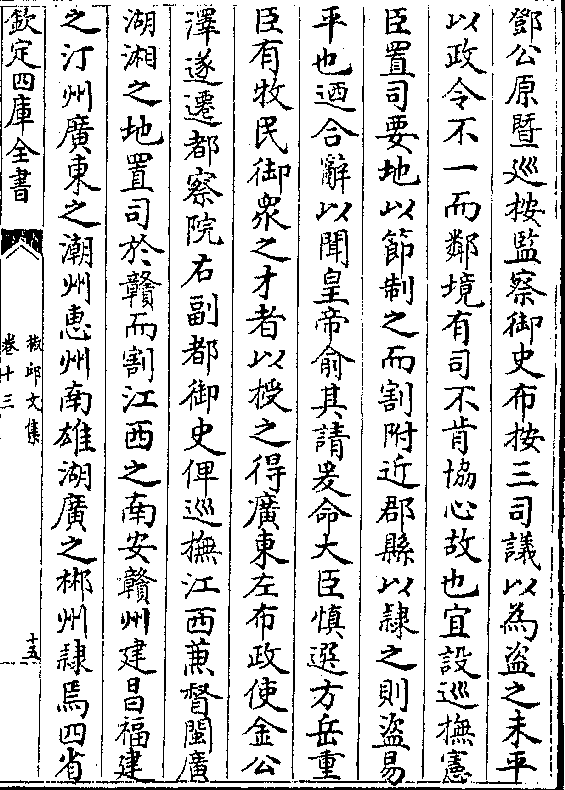 鄧公原暨巡按監察御史布按三司議以為盗之未平
以政令不一而鄰境有司不肯協心故也宜設巡撫憲
臣置司要地以節制之而割附近郡縣以隷之則盗易
平也迺合辭以聞皇帝俞其請爰命大臣慎選方岳重
臣有牧民御衆之才者以授之得廣東左布政使金公
澤遂遷都察院右副都御史俾巡撫江西兼督閩廣
湖湘之地置司於贛而割江西之南安贛州建昌福建
之汀州廣東之潮州惠州南雄湖廣之郴州隷焉四省
欽定四庫全書
椒邱文集
卷十三
十五